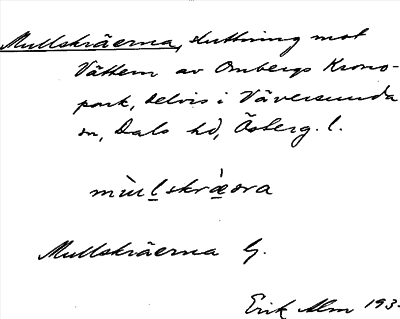 Mullskräerna, sluttning mot
Vättern av Ombergs Krono-
park, delvis i Väversunda
sn, Dals hd, Österg. l.
mùlskræ̀ɷra
Mullskräerna G.
Erik Alm 193